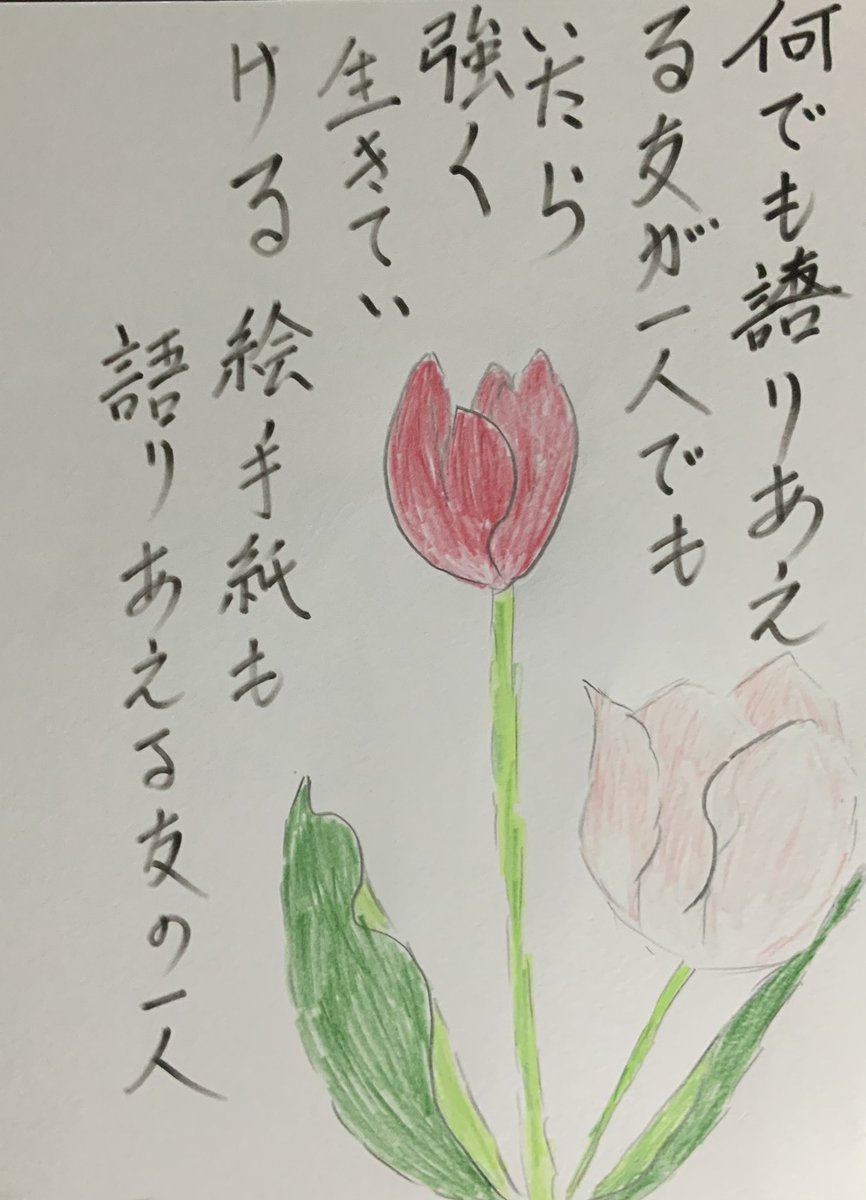 何でも語りあえ
る友が一人でも
いたら
強く
生きてい
ける 絵手紙も
語りあえる友の一人